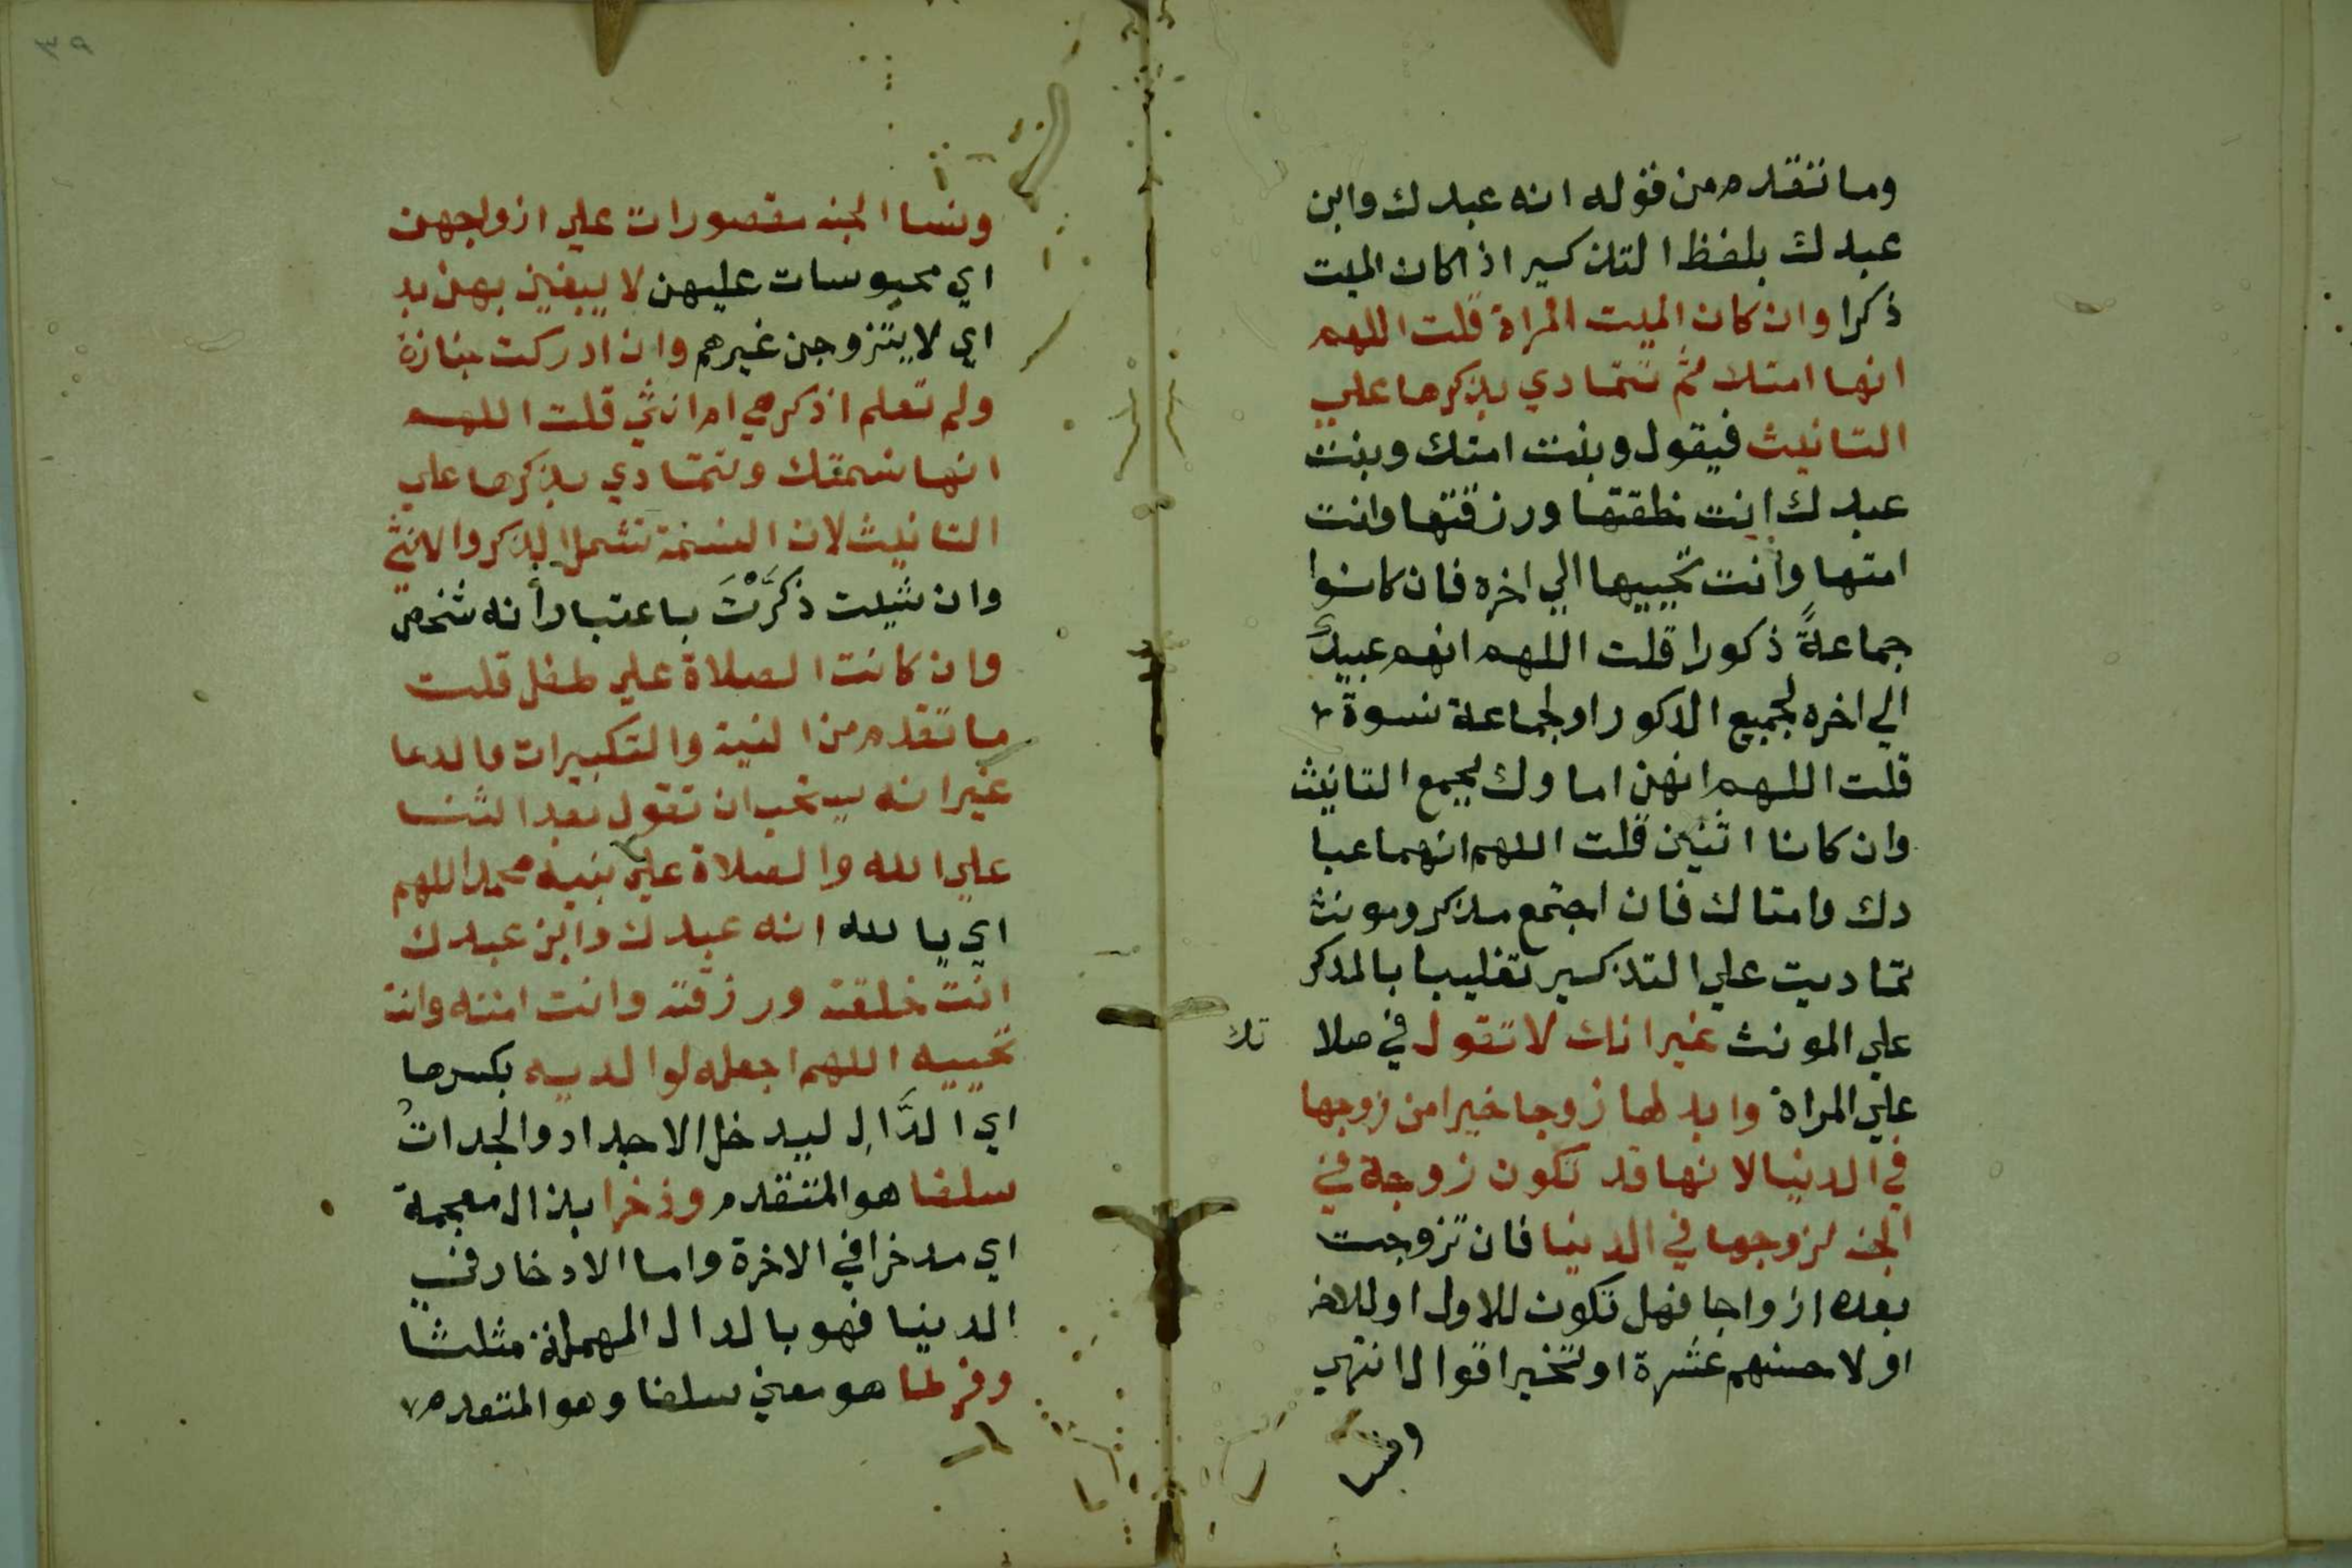 وما تقدم من قوله انه عبدك وابن
عبدك بلفظ التذكير اذا كان الميت
ذكرا وان كان الميت امراة قلت اللهم
انها امتك ثم تتمادي بذكرها علي
التانيث فيقول وبنت امتك وبنت
عبدك انت خلقتها ورزقتها وانت
امتها وانت تحييها الي اخره فان كانوا
جماعةً ذكورا قلت اللهم انهم عبيدك
الي اخره لجميع الذكور او لجماعة نسوة
قلت اللهم انهن اماوك لجمع التانيث
وان كانا اثنين قلت اللهم انهما عبا
دك وامتاك فان اجتمع مذكر ومونث
تماديت علي التذكير تغليبا بالمذكر
علي المونث غير انك لا تقول في صلا تك
علي المراة وابدلها زوجا خيرا من زوجها
في الدنيا لانها قد تكون زوجة في
الجنه لزوجها في الدنيا فان تزوجت
بعده ازواجا فهل تكون للاول او للاخر
او لاحسنهم عشرة او تخير اقوال انتهي
ونسا
٣٩
ونسا الجنه مقصورات علي ازواجهن
اي محبوسات عليهن لا يبغين بهن بد
اي لا يتزوجن غيرهم وان ادركت جنازة
ولم تعلم اذكر هي ام انثي قلت اللهم
انها نسمتك وتتمادي بذكرها علي
التانيث لان النسمة تشمل الذكر والانثي
وان شيت ذكَّرْتَ باعتبار أنه شخص
وان كانت الصلاة علي طفل قلت
ما تقدم من النية والتكبيرات والدعا
غير انه يستحب ان تقول بعد الثنا
علي الله والصلاة علي نبيه محمد اللهم
اي يا لله انه عبدك وابن عبدك
انت خلقته ورزقته وانت امته وانت
تحييه اللهم اجعله لوالديه بكسرها
اي الدَّالِ ليدخل الاجداد والجدات
سلفا هو المتقدم وذخرا بذال معجمة
اي مدخرا في الاخرة واما الادخار في
الدنيا فهو بالدال المهملة مثلثا
وفرطا هو معني سلفا وهو المتقدم